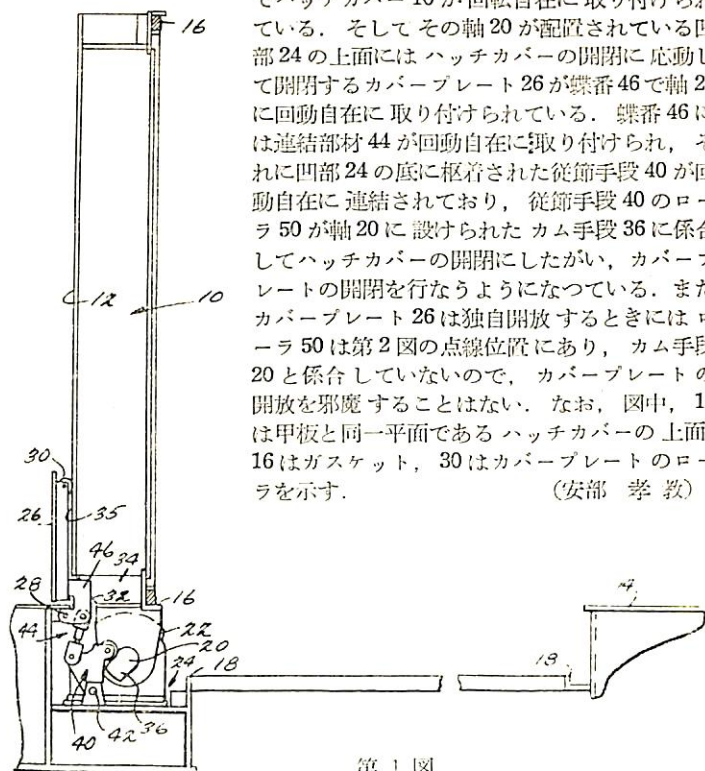 てハッチカバー10が回転自在に取り付けられ
ている．そしてその軸20が配置されている凹
部24の上面にはハッチカバーの開閉に応動し
て開閉するカバープレート26が蝶番46で軸2
に回動自在に取り付けられている．蝶番46に
は連結部材44が回動自在に取り付けられ，そ
れに凹部24の底に枢着された従節手段40が回
動自在に連結されており，従節手段40のロー
ラ50が軸20に設けられたカム手段36に係合
してハッチカバーの開閉にしたがい，カバープ
レートの開閉を行なうようになつている．また
カバープレート26は独自開放するときにはロ
ーラ50は第2図の点線位置にあり，カム手段
20と係合していないので，カバープレートの
開放を邪魔することはない．なお，図中，1
は甲板と同一平面であるハッチカバーの上面
16はガスケット，30はカバープレートのロー
ラを示す．（安部 孝教）
16
12
10
30
26
35
46
34
28
32
16
44
22
20
24
18
14
18
40
42
36
第1図